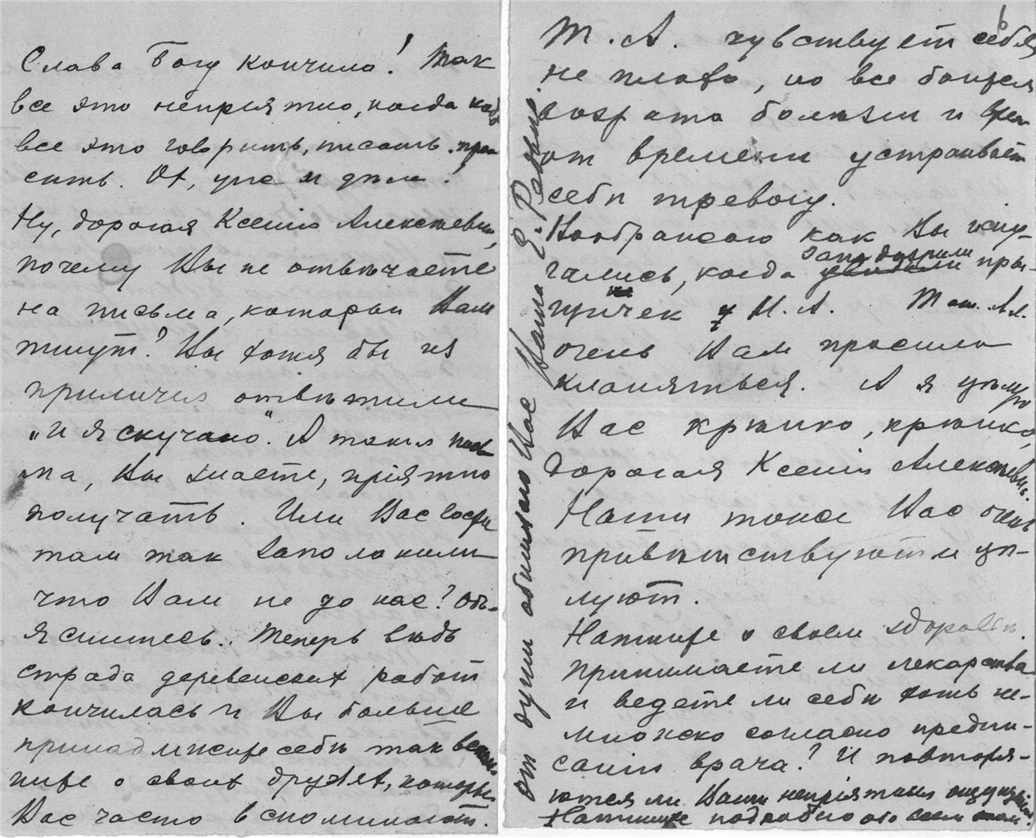 Слава Богу кончила! Так
все это непріятно, когда надо
все это говорить, писать, про-
сить. Ох, уже и дѣла!
Ну, дорогая Ксенія Алексѣевна,
почему Вы не отвѣчаете
на письма, которыя Вам
пишут? Вы хотя бы из
приличия отвѣтили
„И я скучаю". А такія пись-
ма, Вы знаете, пріятно
получать. Или Вас
там так заполонили
что Вам не до нас? Объ-
яснитесь. Теперь вѣдь
страда деревенских работ
кончилась и Вы больше
принадлежите себѣ так вспом-
ните о своих друзьях, которые
Вас часто вспоминают.
6
Т. А. чувствует себя
не плохо, но все боится
возрата болѣзни и время
от времени устраивает
себѣ тревогу.
Воображаю как Вы испу-
гались, когда заподозрили пры-
щичек у Н. А. Тат. Ал.
очень Вам просила
кланяться. А я цѣлую
Вас крѣпко, крѣпко,
дорогая Ксенія Алексѣевна.
Наши тоже Вас очень
привѣтствуют и цѣ-
луют.
Напишите о своем здоровьи
принимаете ли лекарства
и ведете ли себя хоть не-
множко согласно предпи-
санію врача? И повторя-
ются ли Ваши непріятныя ощущенія
Напишите подробно обо всем этом
от души обнимаю Вас Ваша Е. Репина.